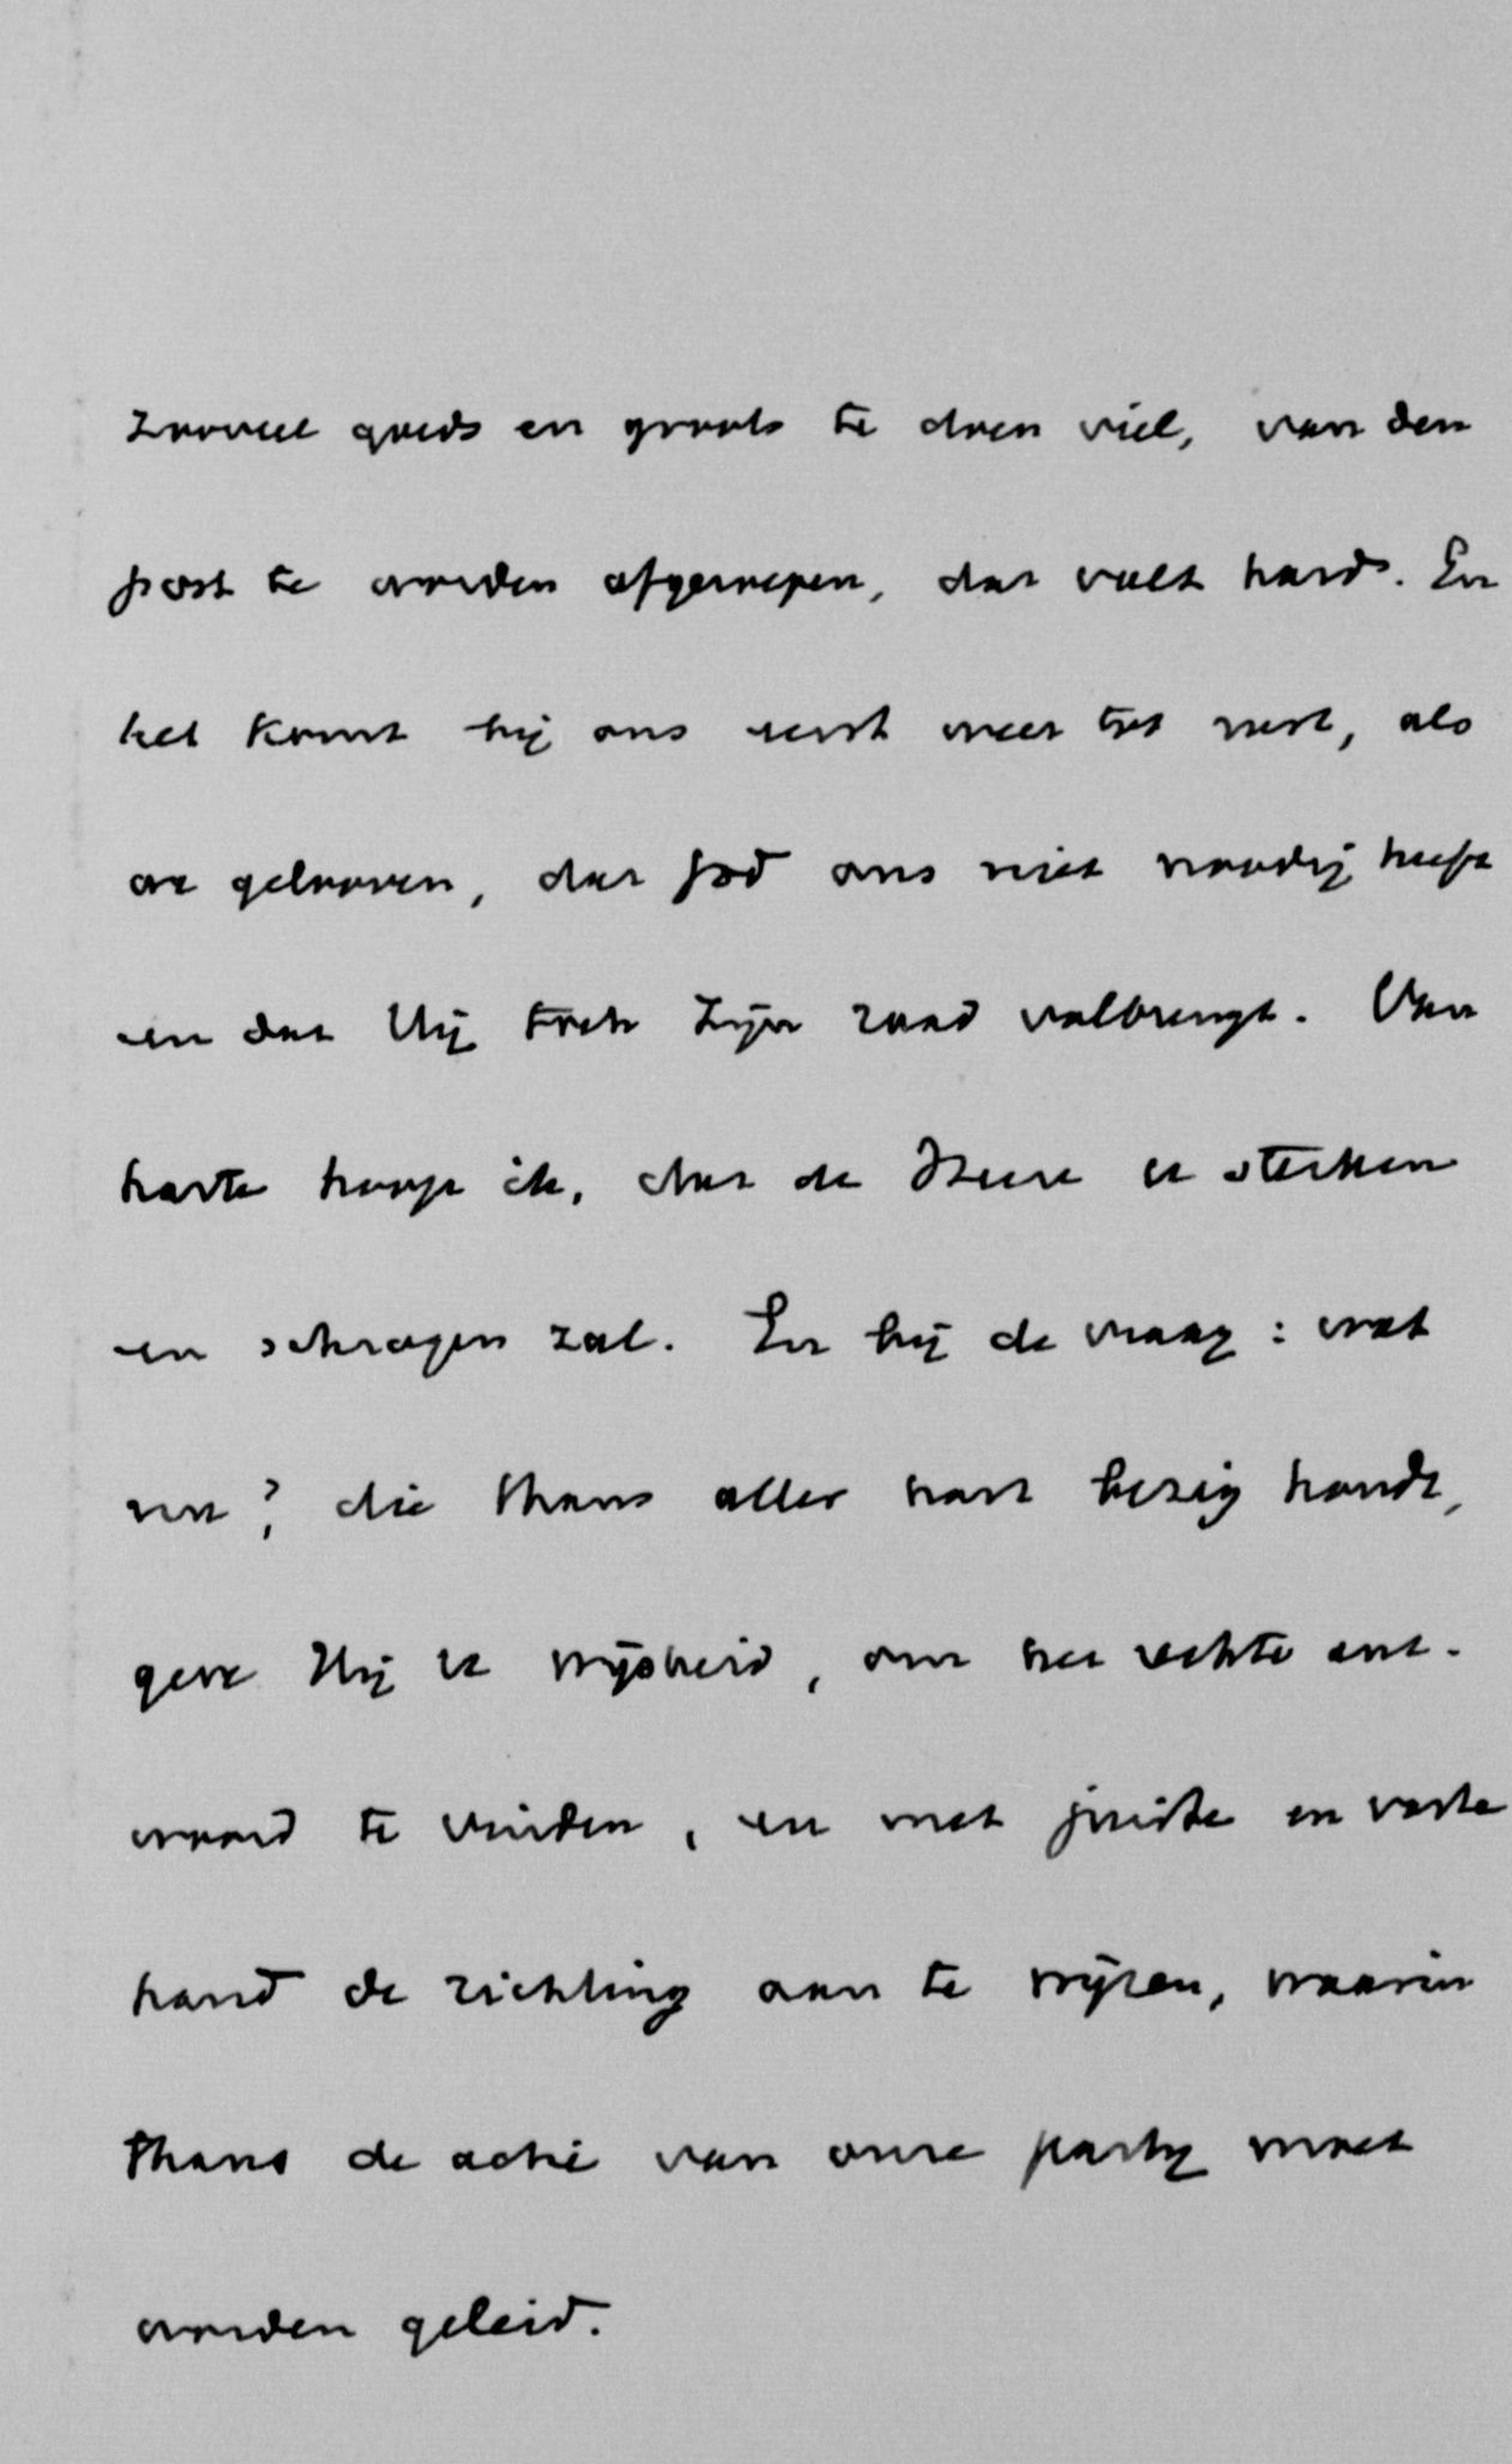 zooveel goeds en groots te doen viel, van den
post te worden afgeroepen, dat valt hard. En
het komt bij ons eerst weer tot rust, als
we gelooven, dat God ons niet noodig heeft
en dat Hij toch Zijn raad volbrengt. Van
harte hoop ik, dat de Heere u sterken
en schragen zal. En bij de vraag: wat
nu?, die thans aller hart bezig houdt,
geve Hij u wijsheid, om het rechte ant-
woord te vinden, en met juiste en vaste
hand de richting aan te wijzen, waarin
thans de actie van onze partij moet
worden geleid.